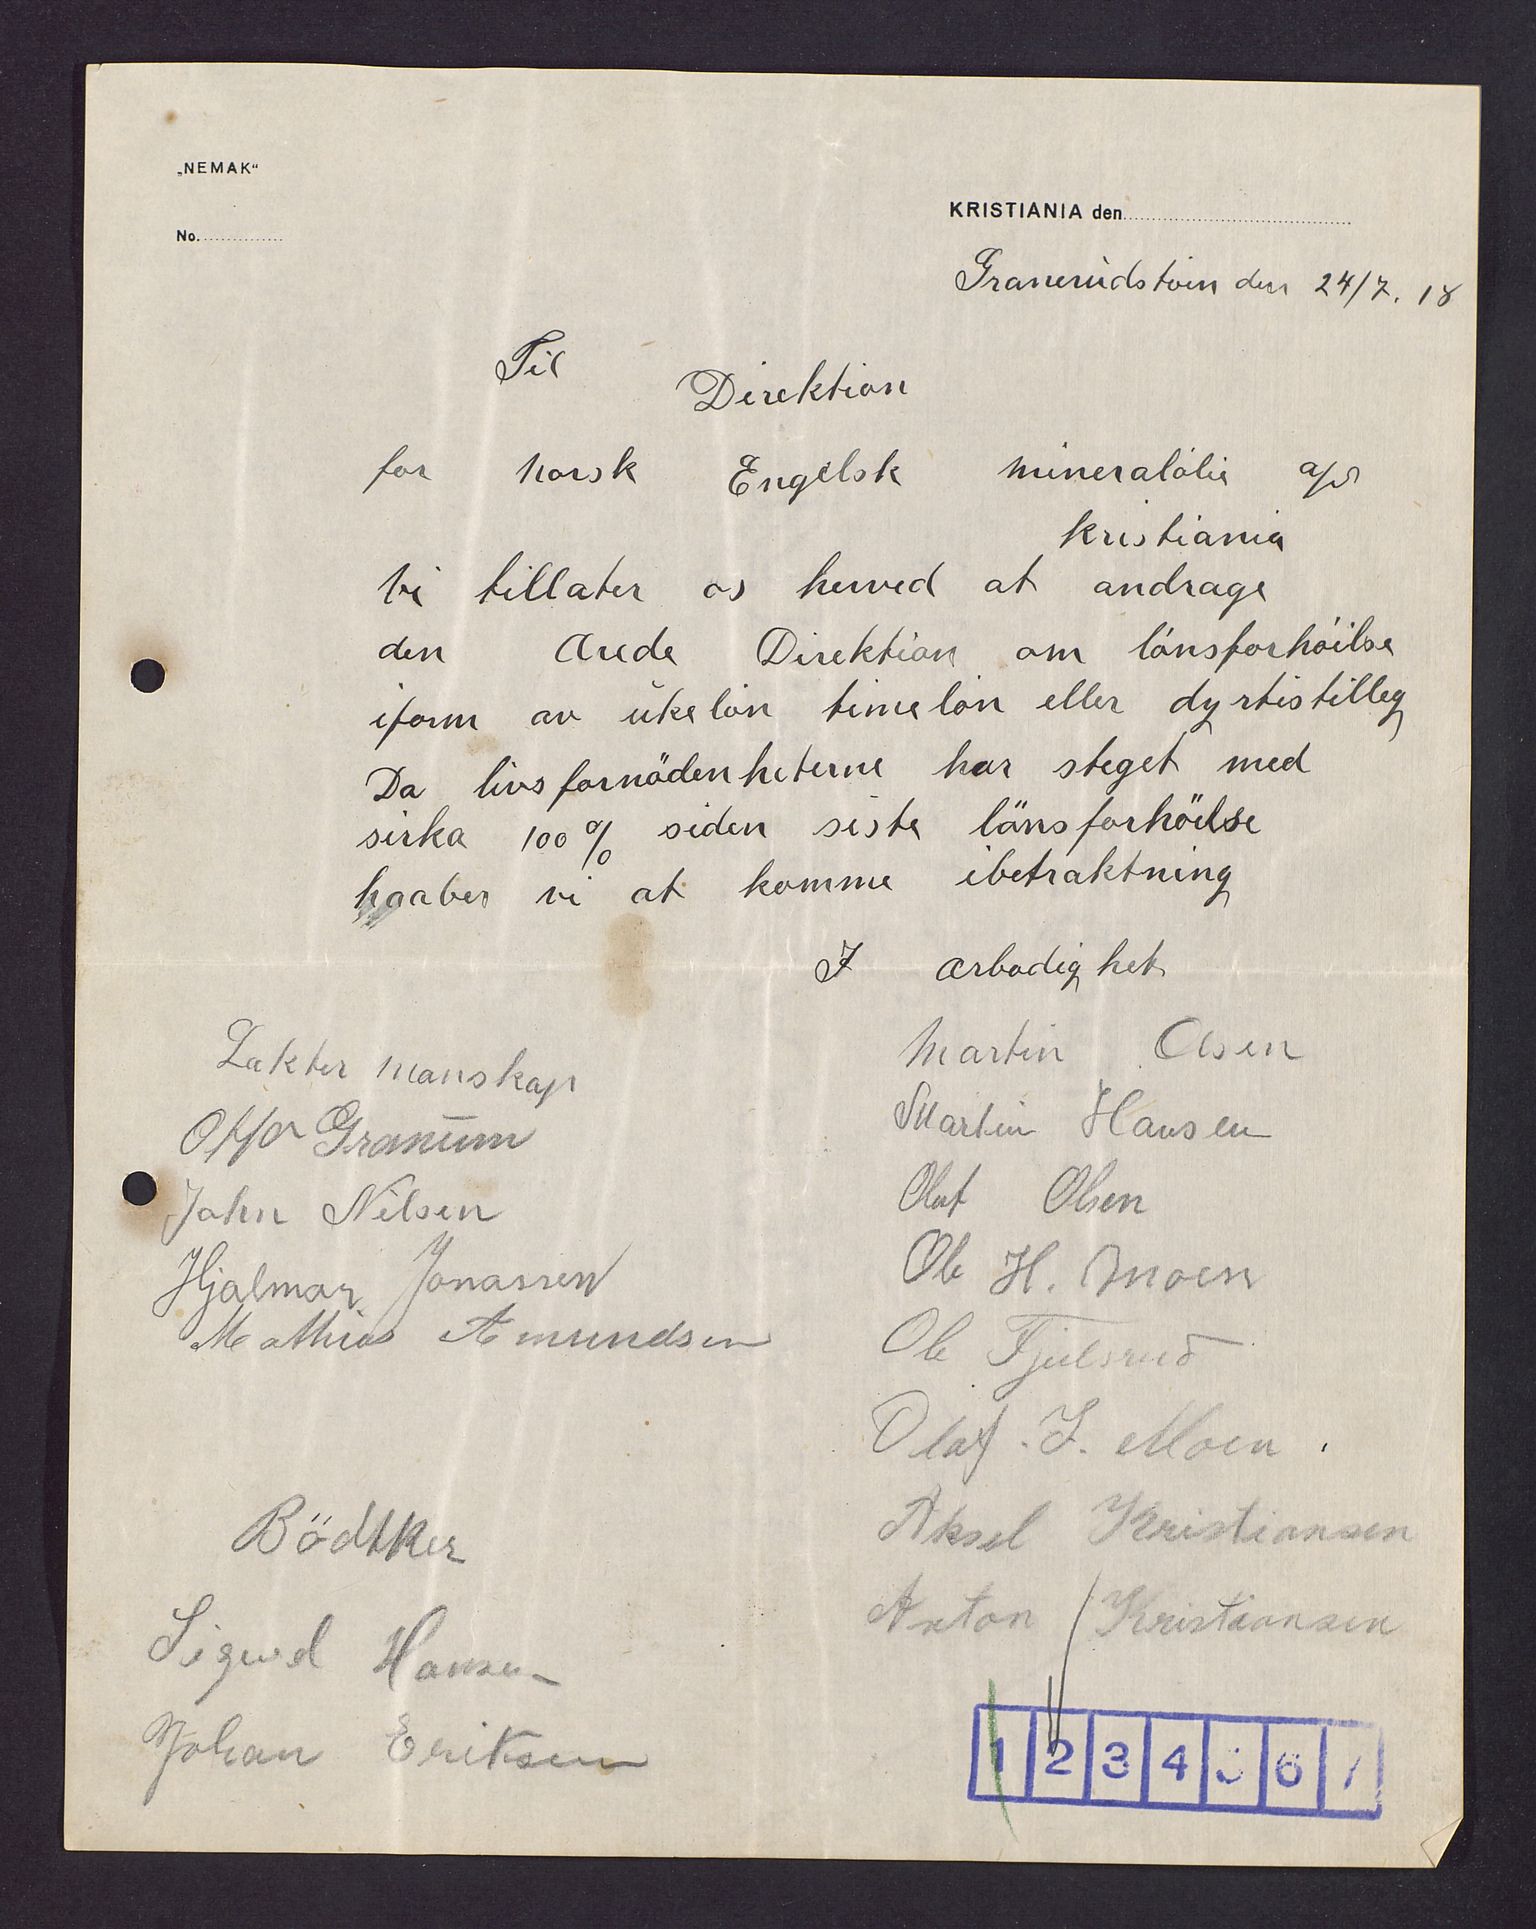 „NEMAK“
No.
KRISTIANIA den
Granerudstøen den 24/7. 18
Til
Direktion
for norsk Engelsk mineralölie a/s
Kristiania
Vi tillater os herved at andrage
den ærede Direktion om lönsforhöilse
iform av ukelön timelön eller dyrtistilleg
Da livsfornödenheterne har steget med
sirka 100% siden siste lönsforhöilse
haaber vi at komme ibetraktning
I ærbodighet
Lakter manskap
Otto Granum
John Nilsen
Hjalmar Jonassen
Mathias Amundsen
Bödtker
Sigurd Hansen
Johan Eriksen
Martin Olsen
Martin Hansen
Olaf Olsen
Ole H. Moen
Ole Fjulsrud
Olaf. J. Moen.
Aksel Kristiansen
Anton Kristiansen
1 2 3 4 5 6 7